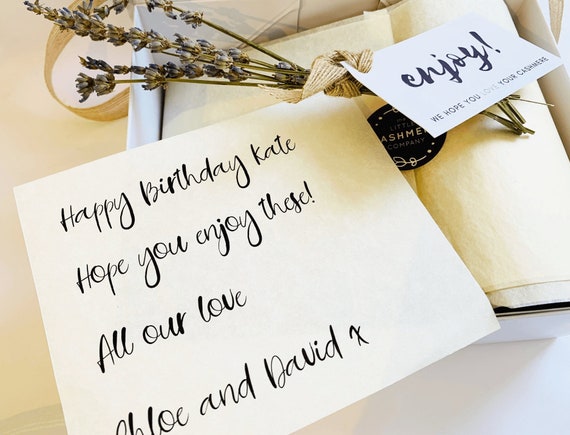 enjoy!
WE HOPE YOU LOVE YOUR CASHMERE
LITTLE
CASHMERE
COMPANY
Happy Birthday Kate
Hope you enjoy these!
All our love
Chloe and David x